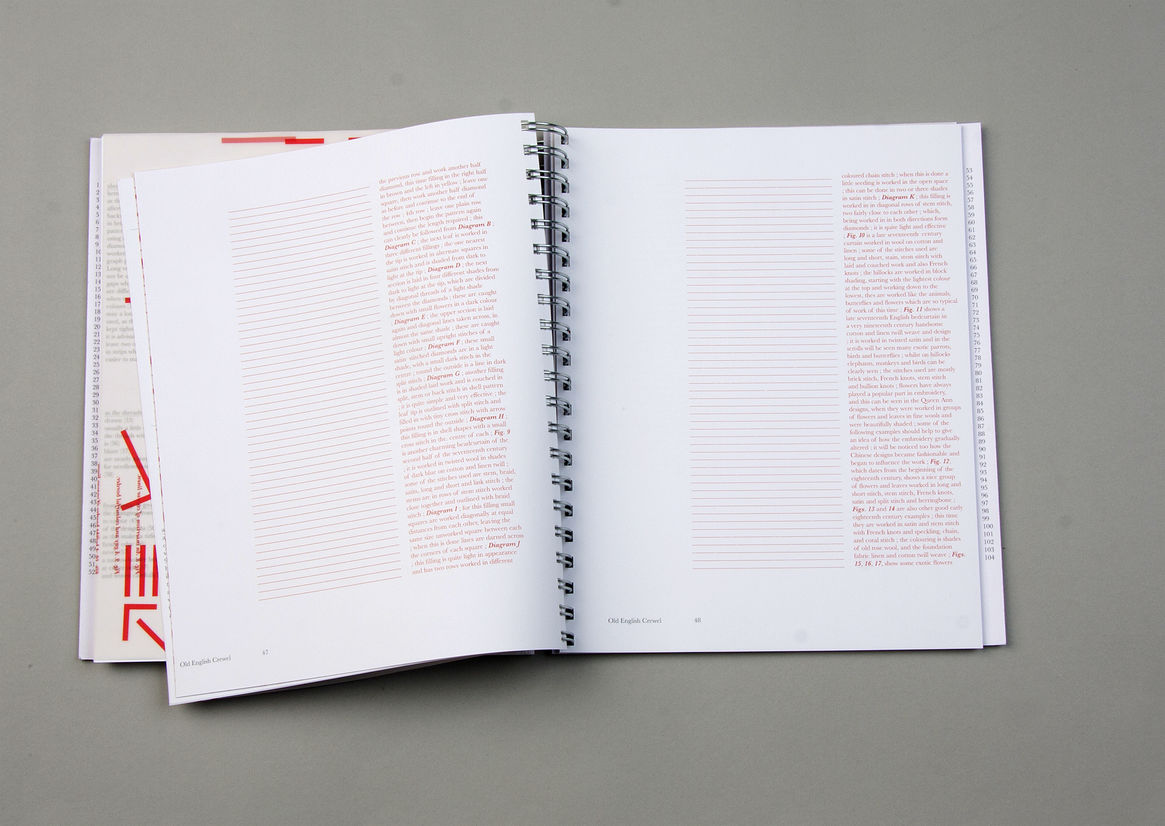 the previous row and work another half
diamond, this time filling in the right half
in brown and the left in yellow ; leave one
square, then work another half diamond
as before and continue to the end of
the row ; 4th row ; leave one plain row
between, then begin the pattern again
and continue the length required ; this
can clearly be followed from Diagram B ;
Diagram C ; the next leaf is worked in
three different fillings ; the one nearest
the tip is worked in alternate squares in
satin stitch and is shaded from dark to
light at the tip ; Diagram D ; the next
section is laid in four different shades from
dark to light at the tip, which are divided
by diagonal threads of a light shade
between the diamonds ; these are caught
down with small flowers in a dark colour
; Diagram E ; the upper section is laid
again and diagonal lines taken across, in
almost the same shade ; these are caught
down with small upright stitches of a
light colour ; Diagram F ; these small
satin stitched diamonds are in a light
shade, with a small dark stitch in the
centre ; round the outside is a line in dark
split stitch ; Diagram G ; another filling
is in shaded laid work and is couched in
split, stem or back stitch in shell pattern
; it is quite simple and very effective ; the
leaf tip is outlined with split stitch and
filled in with tiny cross stitch with arrow
points round the outside ; Diagram H ;
this filling is in shell shapes with a small
cross stitch in the. centre of each ; Fig. 9
is another charming bedcurtain of the
second half of the seventeenth century
; it is worked in twisted wool in shades
of dark blue on cotton and linen twill ;
some of the stitches used are stem, braid,
satin, long and short and link stitch ; the
stems are in rows of stem stitch worked
close together and outlined with braid
stitch ; Diagram I ; for this filling small
squares are worked diagonally at equal
distances from each other, leaving the
same size unworked square between each
; when this is done lines are darned across
the corners of each square ; Diagram J
; this filling is quite light in appearance
and has two rows worked in different
Old English Crewel
47
coloured chain stitch ; when this is done a
little seeding is worked in the open space
; this can be done in two or three shades
in satin stitch ; Diagram K ; this filling is
worked in in diagonal rows of stem stitch,
two fairly close to each other ; which,
being worked in in both directions form
diamonds ; it is quite light and effective
; Fig. 10 is a late seventeenth century
curtain worked in wool on cotton and
linen ; some of the stitches used are
long and short, stain, stem stitch with
laid and couched work and also French
knots ; the hillocks are worked in block
shading, starting with the lightest colour
at the top and working down to the
lowest, they are worked like the animals,
butterflies and flowers which are so typical
of work of this time ; Fig. 11 shows a
late seventeenth English bedcurtain in
a very nineteenth century handsome
cotton and linen twill weave and design
; it is worked in twisted satin and in the
scrolls will be seen many exotic parrots,
birds and butterflies ; whilst on hillocks
elephants, monkeys and birds can be
clearly seen ; the stitches used are mostly
brick stitch, French knots, stem stitch
and bullion knots ; flowers have always
played a popular part in embroidery,
and this can be seen in the Queen Ann
designs, when they were worked in groups
of flowers and leaves in fine wools and
were beautifully shaded ; some of the
following examples should help to give
an idea of how the embroidery gradually
altered ; it will be noticed too how the
Chinese designs became fashionable and
began to influence the work ; Fig. 12,
which dates from the beginning of the
eighteenth century, shows a nice group
of flowers and leaves worked in long and
short stitch, stem stitch, French knots,
satin and split stitch and herringbone ;
Figs. 13 and 14 are also other good early
eighteenth century examples ; this time
they are worked in satin and stem stitch
with French knots and speckling, chain,
and coral stitch ; the colouring is shades
of old rose wool, and the foundation
fabric linen and cotton twill weave ; Figs.
15, 16, 17, show some exotic flowers
Old English Crewel
48
53
54
55
56
57
58
59
60
61
62
63
64
65
66
67
68
69
70
71
72
73
74
75
76
77
78
79
80
81
82
83
84
85
86
87
88
89
90
91
92
93
94
95
96
97
98
99
100
101
102
103
104